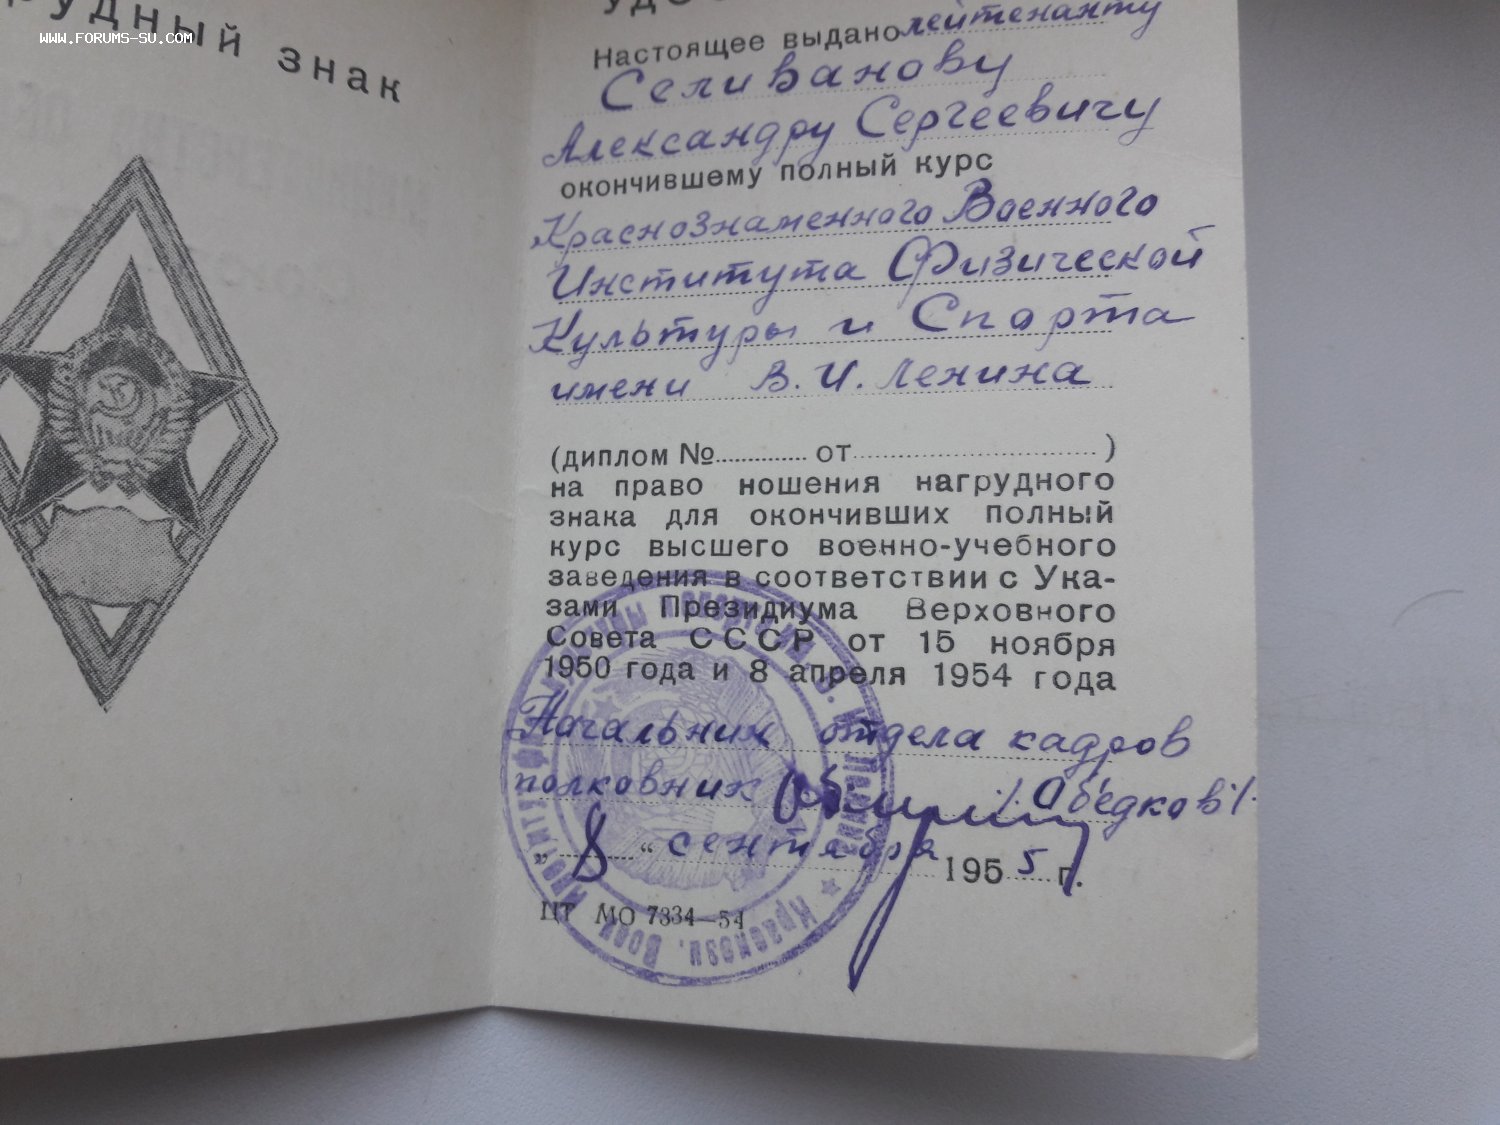 www.forums-su.com
рудный знак
УДО
Настоящее выдано лейтенанту
Селиванову
Александру Сергеевичу
окончившему полный курс
Краснознаменного Военного
Института Физической
Культуры и Спорта
имени В. И. Ленина
(диплом № от )
на право ношения нагрудного
знака для окончивших полный
курс высшего военно-учебного
заведения в соответствии с Ука-
зами Президиума Верховного
Совета СССР от 15 ноября
1950 года и 8 апреля 1954 года
Начальник отдела кадров
полковник /Обедков/.
„8“ сентября 1955 г.
ЦТ МО 7334—54
Краснозн. Воен. Институт Физ. и Спорта им. В. И. Ленина